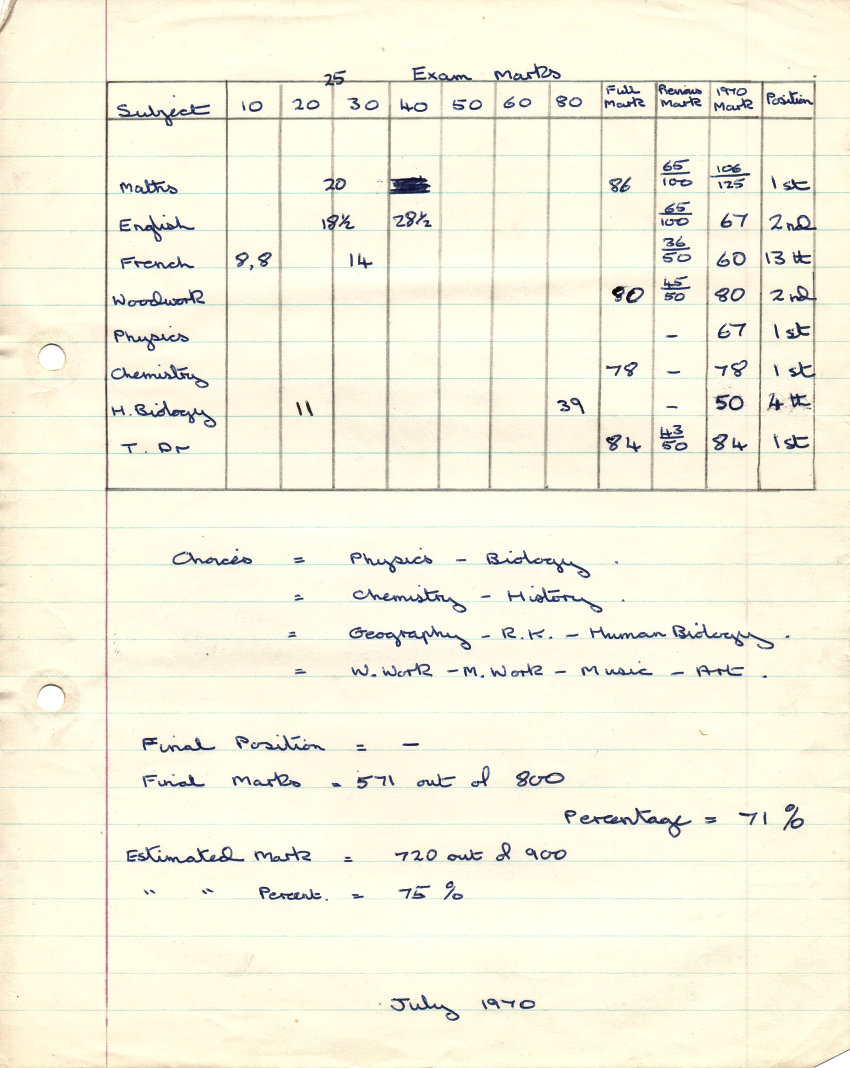 25 Exam Marks
Subject 10 20 30 40 50 60 80 Full Mark Previous Mark 1970 Mark Position
Maths 20 86 65/100 106/125 1st
English 18½ 28½ 65/100 67 2nd
French 8,8 14 36/50 60 13th
Woodwork 80 45/50 80 2nd
Physics - 67 1st
Chemistry 78 - 78 1st
H. Biology 11 39 - 50 4th
T. Dr 84 43/50 84 1st
Choices = Physics - Biology .
= Chemistry - History .
= Geography - R.K. - Human Biology .
= W. Work - M. Work - Music - Art .
Final Position = -
Final Marks = 571 out of 800
Percentage = 71 %
Estimated Mark = 720 out of 900
" " Percent. = 75 %
July 1970